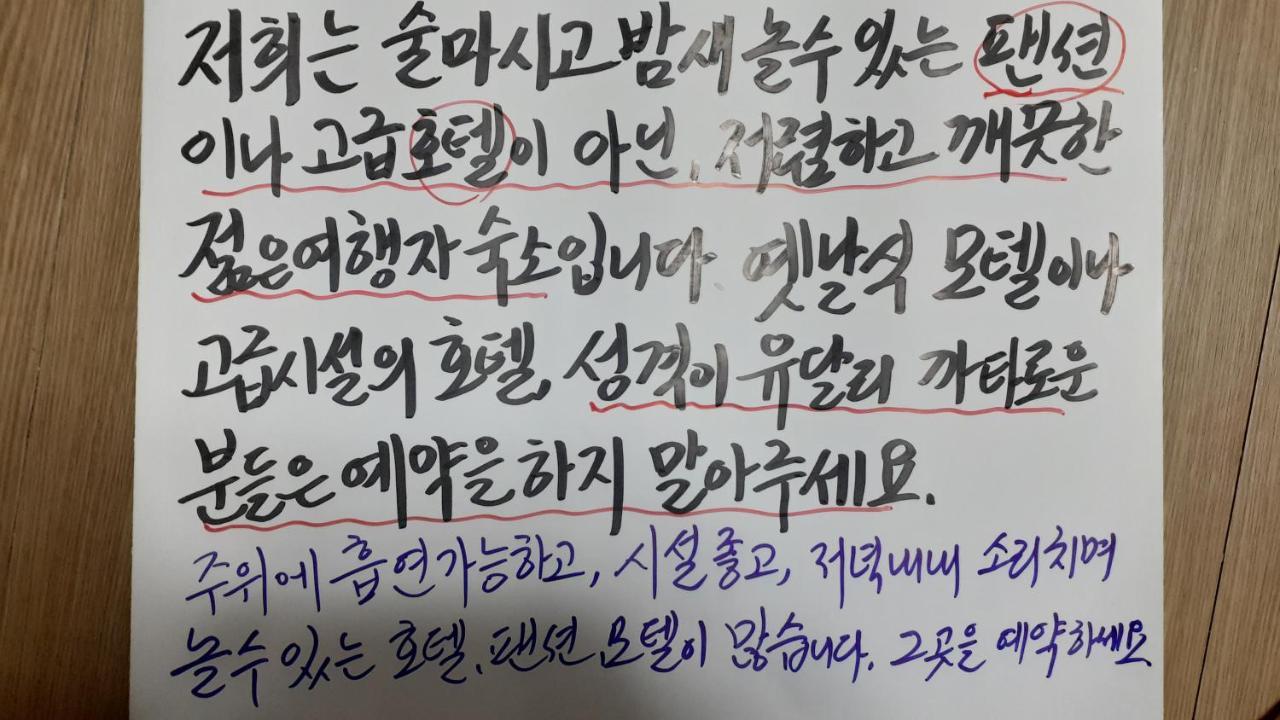 저희는 술마시고 밤새 놀수 있는 팬션
이나 고급호텔이 아닌, 저렴하고 깨끗한
젊은여행자 숙소입니다. 옛날식 모텔이나
고급시설의 호텔, 성격이 유달리 까타로운
분들은 예약을하지 말아주세요.
주위에 흡연가능하고, 시설좋고, 저녁내내 소리치며
놀수있는 호텔, 팬션, 모텔이 많습니다. 그곳을 예약하세요